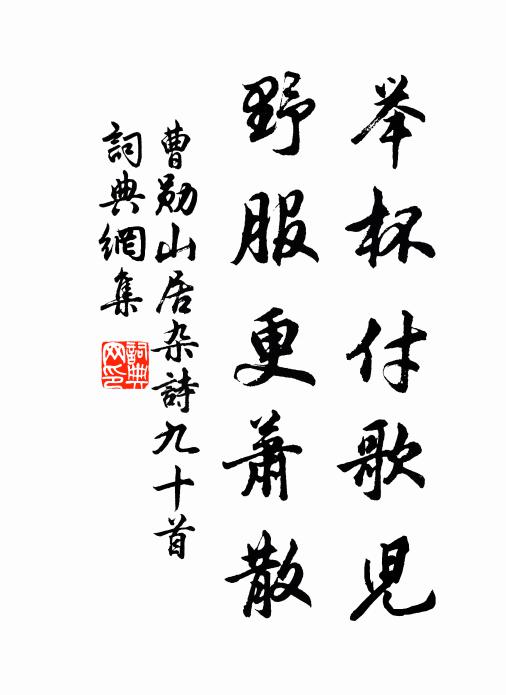 举杯付歌児
野服更蕭散
曹勋山居杂詩九十首
詞典網集
詞典
网印